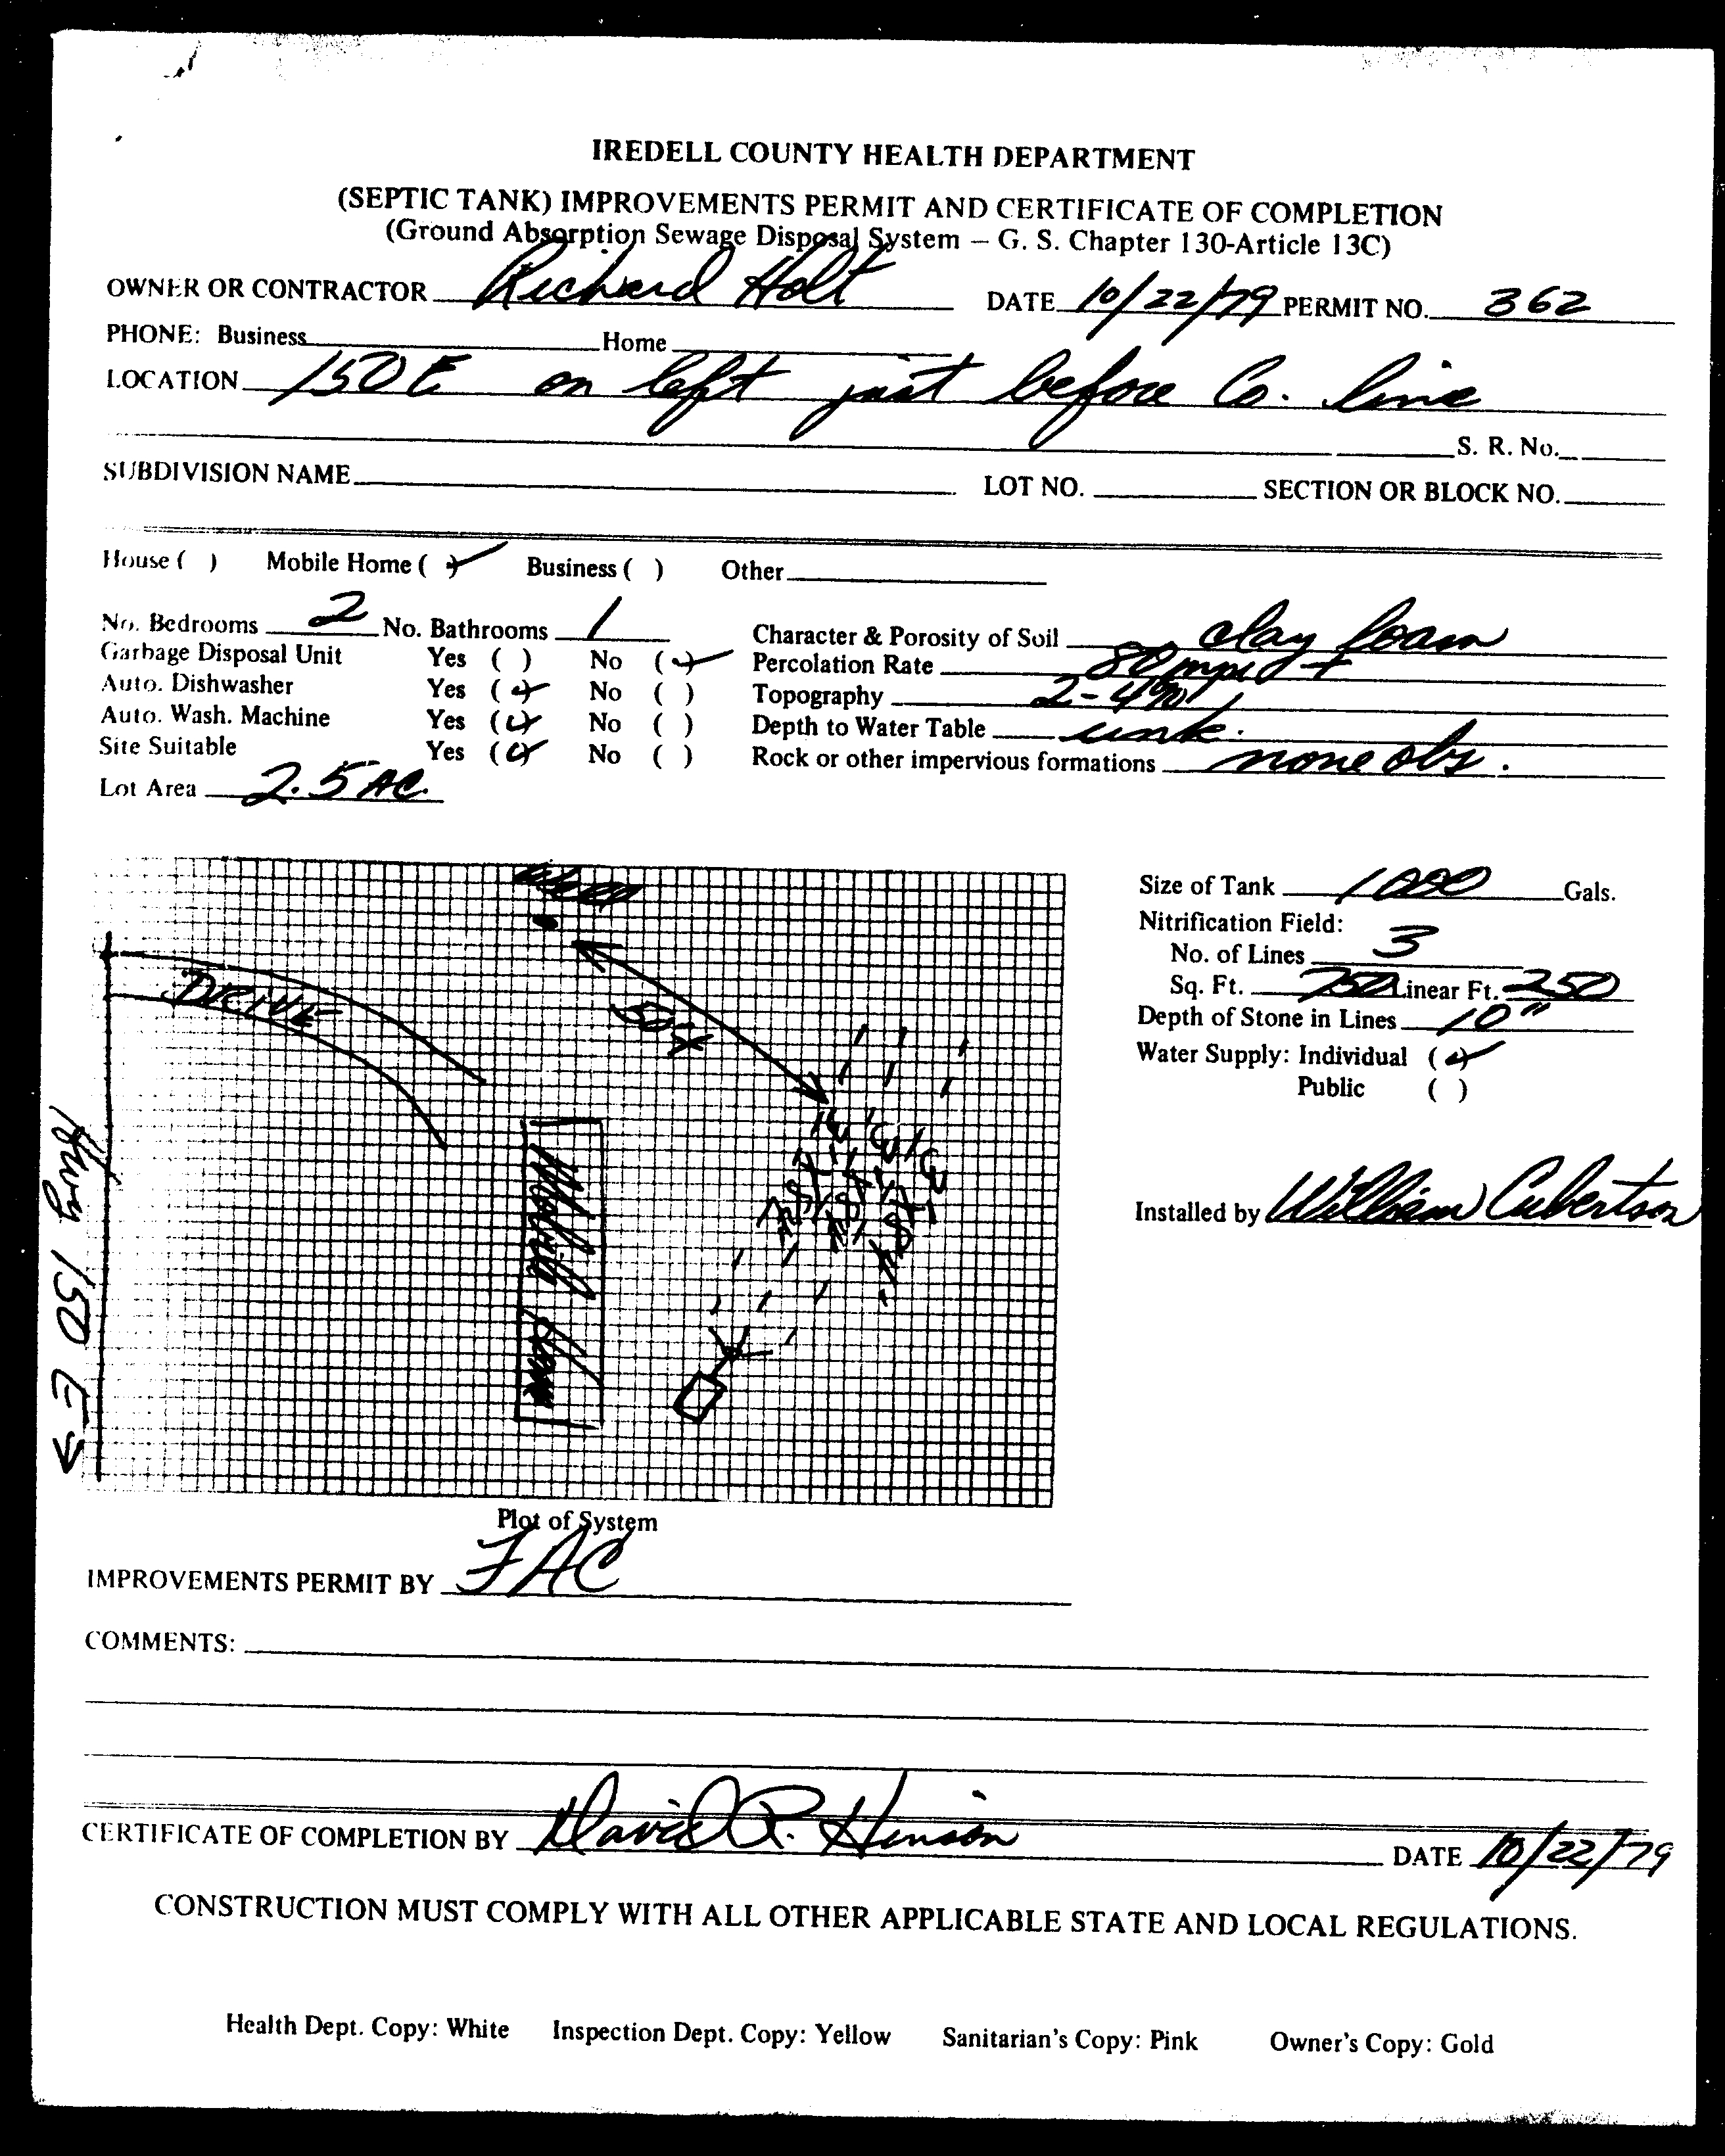 IREDELL COUNTY HEALTH DEPARTMENT
(SEPTIC TANK) IMPROVEMENTS PERMIT AND CERTIFICATE OF COMPLETION
(Ground Absorption Sewage Disposal System – G. S. Chapter 130-Article 13C)
OWNER OR CONTRACTOR Richard Holt DATE 10/22/79 PERMIT NO. 362
PHONE: Business Home
LOCATION 150 E on left just before Co. line
S. R. No.
SUBDIVISION NAME LOT NO. SECTION OR BLOCK NO.
House ( ) Mobile Home (✓) Business ( ) Other
No. Bedrooms 2 No. Bathrooms 1 Character & Porosity of Soil clay loam
Garbage Disposal Unit Yes ( ) No (✓) Percolation Rate 80 mpi +
Auto. Dishwasher Yes (✓) No ( ) Topography 2-4%
Auto. Wash. Machine Yes (✓) No ( ) Depth to Water Table unk.
Site Suitable Yes (✓) No ( ) Rock or other impervious formations none obs.
Lot Area 2.5 AC.
Size of Tank 1000 Gals.
Nitrification Field:
No. of Lines 3
Sq. Ft. 750 Linear Ft. 250
Depth of Stone in Lines 10"
Water Supply: Individual (✓)
Public ( )
Installed by William Culbertson
DRIVE
Mobile Home
Hwy 150 E →
Plot of System
IMPROVEMENTS PERMIT BY FAC
COMMENTS:
CERTIFICATE OF COMPLETION BY David R. Henson DATE 10/22/79
CONSTRUCTION MUST COMPLY WITH ALL OTHER APPLICABLE STATE AND LOCAL REGULATIONS.
Health Dept. Copy: White Inspection Dept. Copy: Yellow Sanitarian's Copy: Pink Owner's Copy: Gold